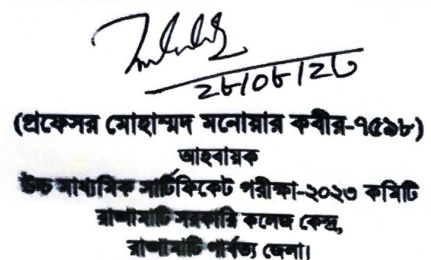 ২৮/০৮/২৩
(প্রফেসর মোহাম্মদ মনোয়ার কবীর-৭৫৯৮)
আহবায়ক
উচ্চ মাধ্যমিক সার্টিফিকেট পরীক্ষা-২০২৩ কমিটি
রাঙ্গামাটি সরকারি কলেজ কেন্দ্র,
রাঙ্গামাটি পার্বত্য জেলা।